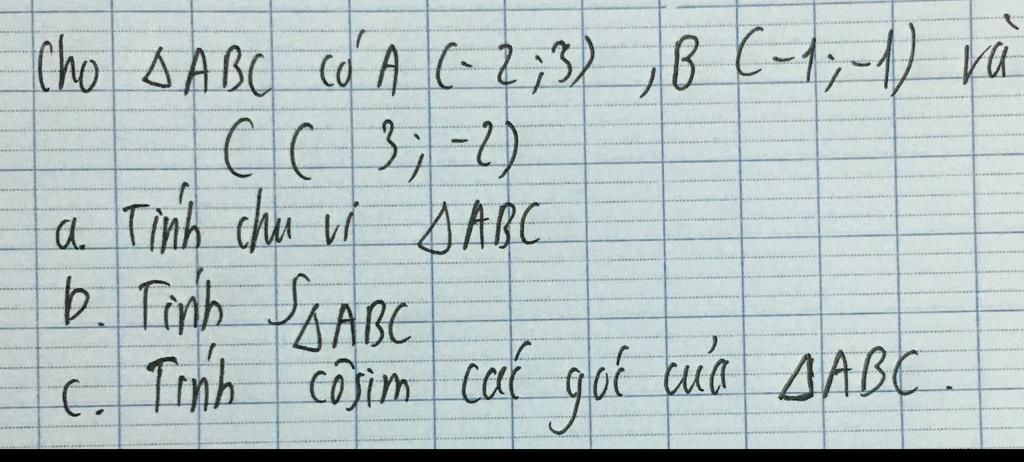 Cho ΔABC có A (-2;3), B (-1;-1) và
C ( 3; -2)
a. Tính chu vi ΔABC
b. Tính SΔABC
c. Tính côsim các góc của ΔABC.